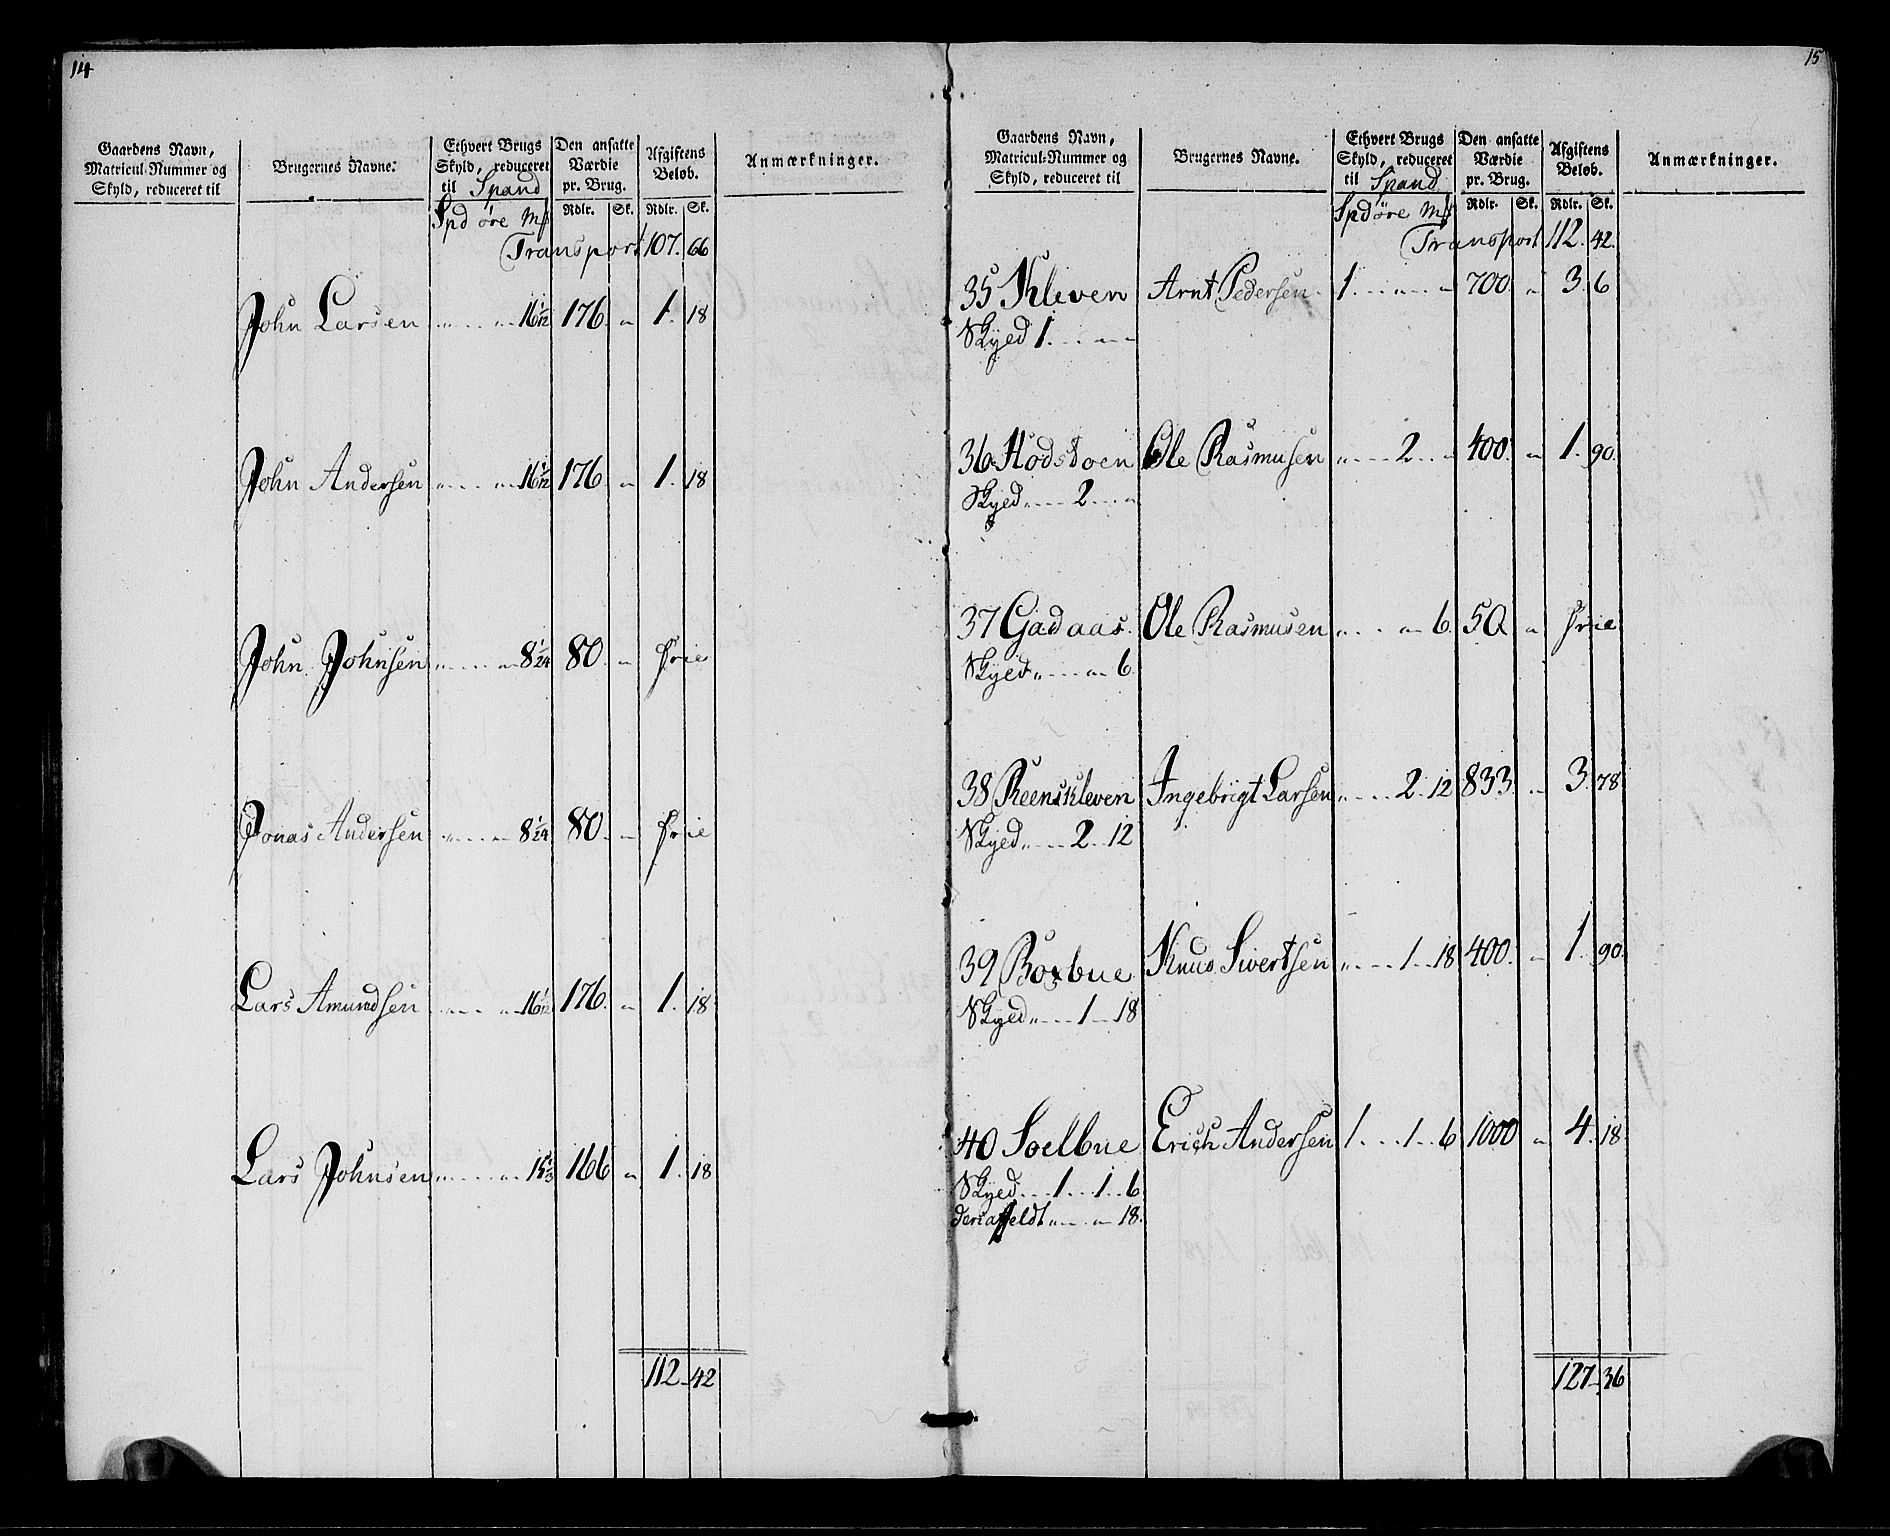 14
Gaardens Navn, Matricul-Nummer og Skyld, reduceret til
Brugernes Navne.
Ethvert Brugs Skyld, reduceret til Spand
Den ansatte Værdie pr. Brug.
Afgiftens Beløb.
Anmærkninger.
Spd øre Mk
Rdlr. Sk. Rdlr. Sk.
Transport 107. 66
John Larsen " " 16 1/12 176. " 1. 18
John Andersen " " 16 1/12 176. " 1. 18
John Johnsen " " 8 1/24 80. " frie
Jonas Andersen " " 8 1/24 80. " frie
Lars Amundsen " " 16 1/12 176. " 1. 18
Lars Johnsen " " 15 1/3 166 " 1. 18
112. 42
15
Gaardens Navn, Matricul-Nummer og Skyld, reduceret til
Brugernes Navne.
Ethvert Brugs Skyld, reduceret til Spand
Den ansatte Værdie pr. Brug.
Afgiftens Beløb.
Anmærkninger.
Spd øre Mk
Rdlr. Sk. Rdlr. Sk.
Transport 112. 42.
35 Kleven Arnt Pedersen 1 " " 700. " 3. 6
Skyld 1. " "
36 Hodstoen Ole Rasmusen " 2 " 400. " 1. 90.
Skyld " 2 "
37 Gadaas. Ole Rasmusen " " 6. 50 " frie
Skyld " " 6.
38 Reenskleven Ingebrigt Larsen " 2. 12 833. " 3. 78
Skyld " 2. 12
39 Boxbue Knud Sivertsen " 1 18 400. " 1. 90.
Skyld " 1 18
40 Soelbue Erich Andersen 1 1 6 1000 " 4. 18.
Skyld 1 1 6
" " 18.
127. 36